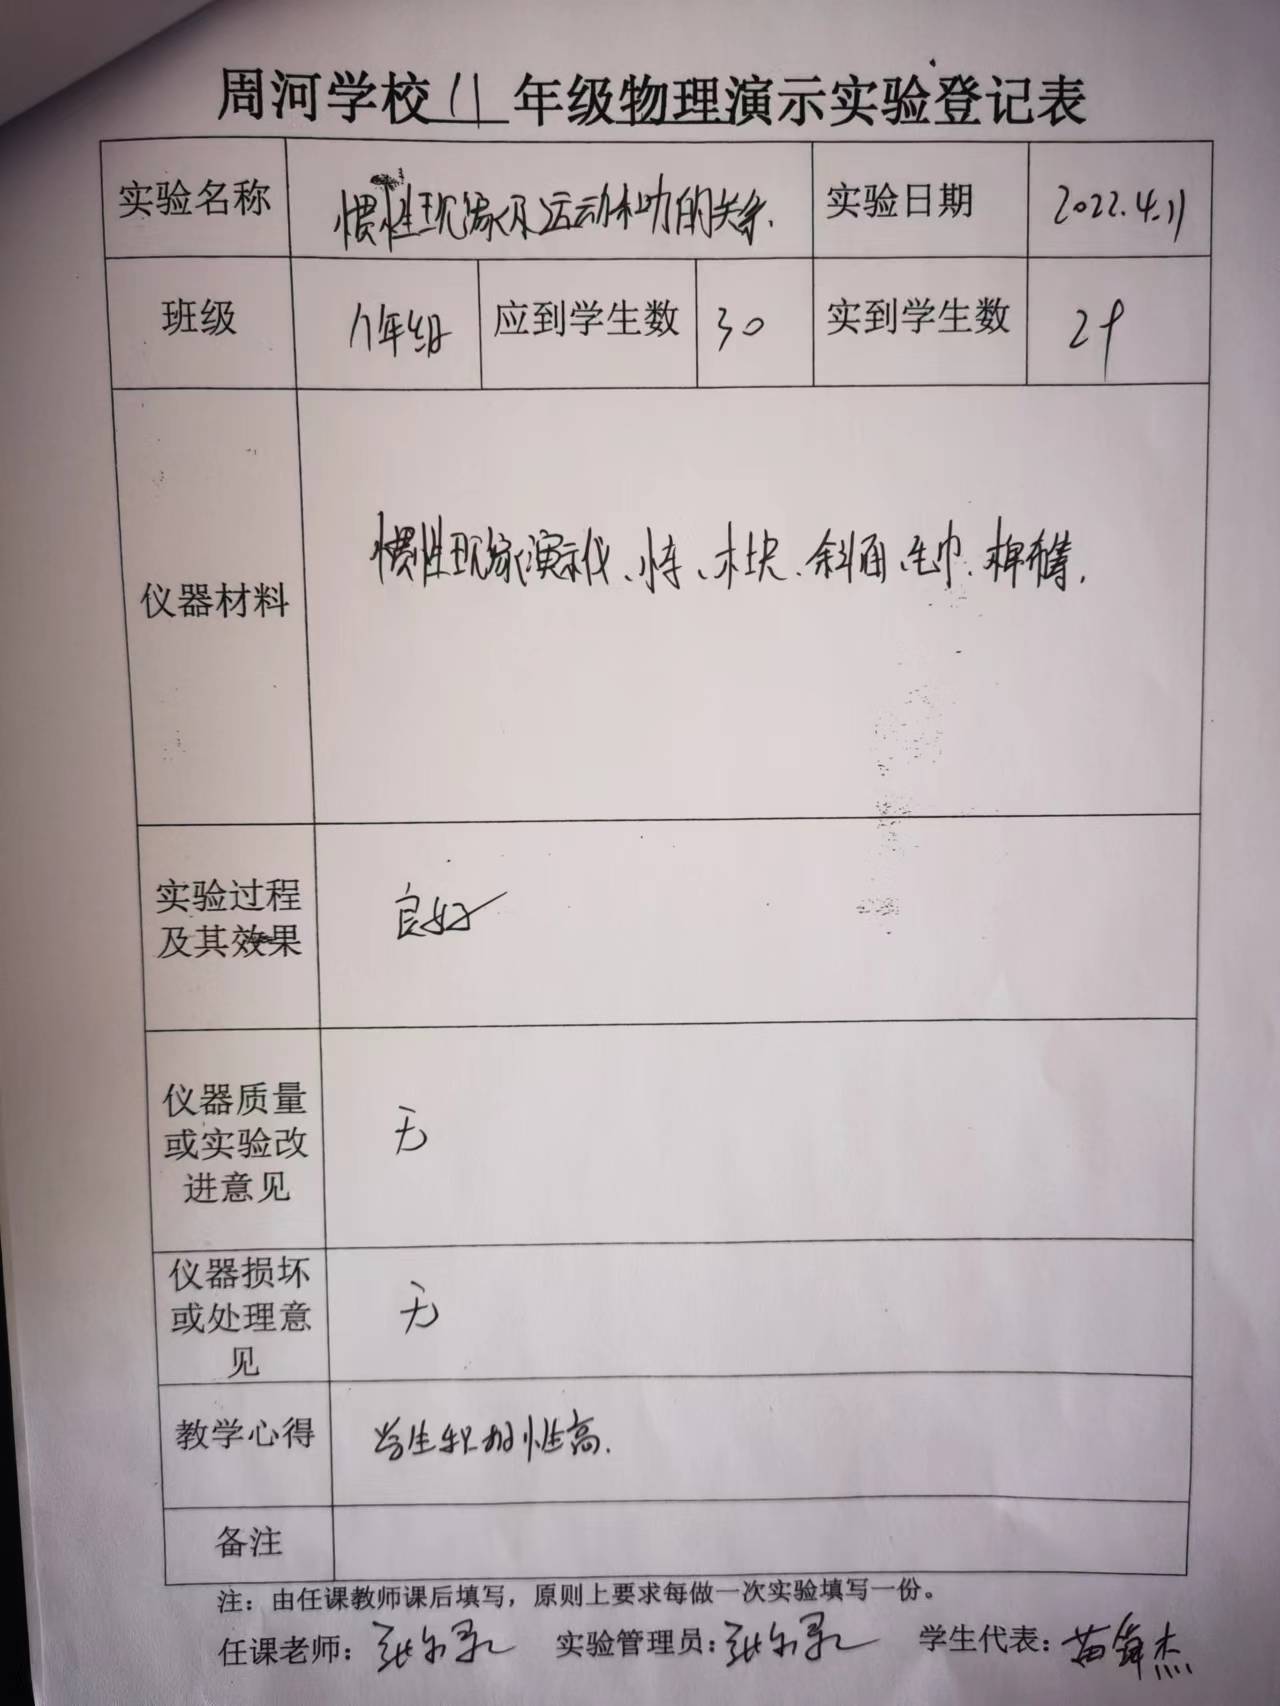 周河学校 八 年级物理演示实验登记表
实验名称 惯性现象及运动和力的关系. 实验日期 2022.4.11
班级 八年级 应到学生数 30 实到学生数 29
仪器材料 惯性现象演示仪、小车、木块、斜面、毛巾、棉布等.
实验过程
及其效果 良好
仪器质量
或实验改
进意见 无
仪器损坏
或处理意
见 无
教学心得 学生积极性高.
备注
注：由任课教师课后填写，原则上要求每做一次实验填写一份。
任课老师： 实验管理员： 学生代表：